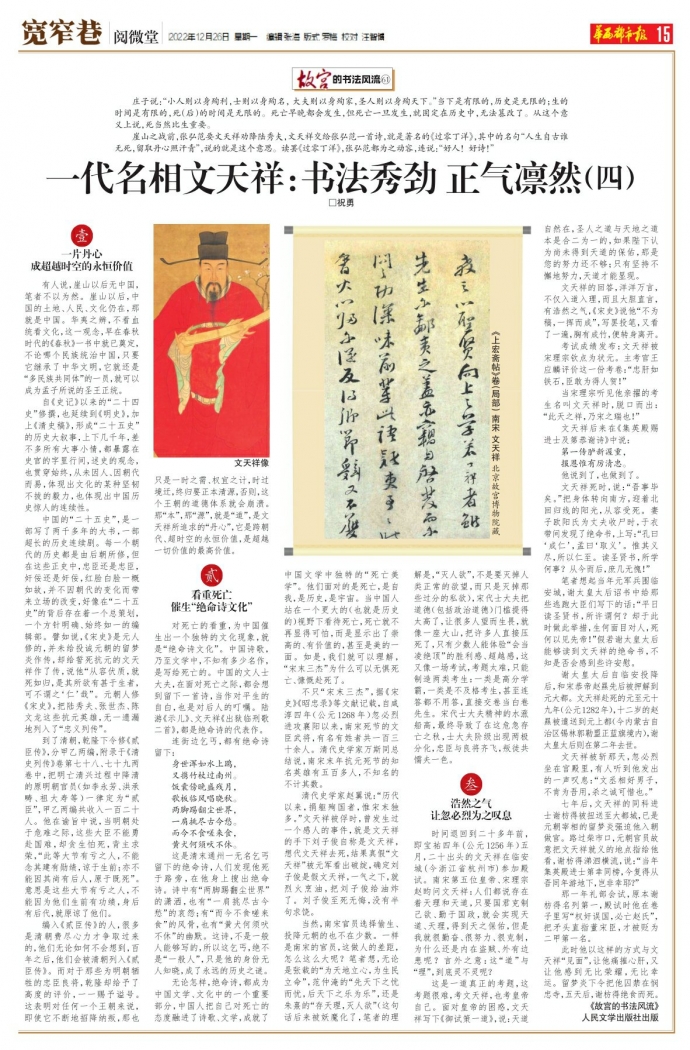 宽窄巷
阅微堂
2022年12月26日 星期一 编辑 张海 版式 罗梅 校对 汪智博
华西都市报 15
故宫的书法风流
庄子说:“小人则以身殉利,士则以身殉名,大夫则以身殉家,圣人则以身殉天下。”当下是有限的,历史是无限的;生的
时间是有限的,死(后)的时间是无限的。死亡早晚都会发生,但死亡一旦发生,就固定在历史中,无法篡改了。从这个意
义上说,死当然比生重要。
崖山之战前,张弘范要文天祥劝降陆秀夫,文天祥交给张弘范一首诗,就是著名的《过零丁洋》,其中的名句“人生自古谁
无死,留取丹心照汗青”,说的就是这个意思。读罢《过零丁洋》,张弘范都为之动容,连说:“好人!好诗!”
一代名相文天祥:书法秀劲 正气凛然(四)
□祝勇
壹
一片丹心
成超越时空的永恒价值
有人说,崖山以后无中国,
笔者不以为然。崖山以后,中
国的土地、人民、文化仍在,那
就是中国。华夷之辨,不看血
统看文化,这一观念,早在春秋
时代的《春秋》一书中就已奠定,
不论哪个民族统治中国,只要
它继承了中华文明,它就还是
“多民族共同体”的一员,就可以
成为孟子所说的圣王正统。
自《史记》以来的“二十四
史”修撰,也延续到《明史》,加
上《清史稿》,形成“二十五史”
的历史大叙事,上下几千年,差
不多所有大事小情,都暴露在
史官的字里行间,述史的观念,
也贯穿始终,从未因人、因朝代
而易,体现出文化的某种坚韧
不拔的毅力,也体现出中国历
史惊人的连续性。
中国的“二十五史”,是一
部写了两千多年的大书,一部
超长的历史连续剧。每一个朝
代的历史都是由后朝所修,但
在这些正史中,忠臣还是忠臣,
奸佞还是奸佞,红脸白脸一概
如故,并不因朝代的变化而带
来立场的改变,好像在“二十五
史”的背后存在着一个总策划,
一个方针明确、始终如一的编
辑部。譬如说,《宋史》是元人
修的,并未给投诚元朝的留梦
炎作传,却给誓死抗元的文天
祥作了传,说他“从容伏质,就
死如归,是其所欲有甚于生者,
可不谓之‘仁’哉”。元朝人修
《宋史》,把陆秀夫、张世杰、陈
文龙这些抗元英雄,无一遗漏
地列入了“忠义列传”。
到了清朝,乾隆下令修《贰
臣传》,分甲乙两编,附录于《清
史列传》卷第七十八、七十九两
卷中,把明亡清兴过程中降清
的原明朝官员(如李永芳、洪承
畴、祖大寿等)一律定为“贰
臣”,甲乙两编共收入一百二十
人。他在谕旨中说,当明朝处
于危难之际,这些大臣不能勇
赴国难,却贪生怕死,背主求
荣,“此等大节有亏之人,不能
念其建有勋绩,谅于生前;亦不
能因其尚有后人,原于既死”。
意思是这些大节有亏之人,不
能因为他们生前有功绩,身后
有后代,就原谅了他们。
编入《贰臣传》的人,很多
是清朝费尽心力才争取过来
的,他们无论如何不会想到,百
年之后,他们会被清朝列入《贰
臣传》。而对于那些为明朝牺
牲的忠臣良将,乾隆却给予了
高度的评价,一一赐予谥号。
这表明对任何一个王朝来说,
即使它不断地招降纳叛,那也
文天祥像
只是一时之需,权宜之计,时过
境迁,终归要正本清源,否则,这
个王朝的道德体系就会崩溃。
那“本”,那“源”,就是“道”,是文
天祥所追求的“丹心”,它是跨朝
代、超时空的永恒价值,是超越
一切价值的最高价值。
贰
看重死亡
催生“绝命诗文化”
对死亡的看重,为中国催
生出一个独特的文化现象,就
是“绝命诗文化”。中国诗歌,
乃至文学中,不知有多少名作,
是写给死亡的。中国的文人士
大夫,在面对死亡之际,都会想
到留下一首诗,当作对平生的
自白,也是对后人的叮嘱。陆
游《示儿》、文天祥《出狱临刑歌
二首》,都是绝命诗的代表作。
连街边乞丐,都有绝命诗
留下:
身世浑如水上鸥,
又携竹杖过南州。
饭囊傍晚盛残月,
歌板临风唱晓秋。
两脚踢翻尘世界,
一肩挑尽古今愁。
而今不食嗟来食,
黄犬何须吠不休。
这是清末通州一无名乞丐
留下的绝命诗,人们发现他死
于路旁,在他身上搜出绝命
诗。诗中有“两脚踢翻尘世界”
的潇洒,也有“一肩挑尽古今
愁”的哀怨;有“而今不食嗟来
食”的风骨,也有“黄犬何须吠
不休”的幽默。这诗,不是一般
人能够写的,所以这乞丐,绝不
是“一般人”,只是他的身份无
人知晓,成了永远的历史之谜。
无论怎样,绝命诗,都成为
中国文学、文化中的一个重要
部分,中国人把自己对死亡的
态度融进了诗歌、文学,成就了
《上宏斋帖》卷(局部) 南宋 文天祥 北京故宫博物院藏
中国文学中独特的“死亡美
学”。他们面对的是死亡,是自
我,是历史,是宇宙。当中国人
站在一个更大的(也就是历史
的)视野下看待死亡,死亡就不
再显得可怕,而是显示出了崇
高的、有价值的,甚至是美的一
面。如是,我们就可以理解,
“宋末三杰”为什么可以无惧死
亡、慷慨赴死了。
不只“宋末三杰”,据《宋
史》《昭忠录》等文献记载,自咸
淳四年(公元1268年)忽必烈
进攻襄阳以来,南宋死节的文
臣武将,有名有姓者共一百三
十余人。清代史学家万斯同总
结说,南宋末年抗元死节的知
名英雄有五百多人,不知名的
不计其数。
清代史学家赵翼说:“历代
以来,捐躯殉国者,惟宋末独
多。”文天祥被俘时,曾发生过
一个感人的事件,就是文天祥
的手下刘子俊自称是文天祥,
想代文天祥去死,结果真假“文
天祥”被元军看出破绽,确定刘
子俊是假文天祥,一气之下,就
烈火烹油,把刘子俊给油炸
了。刘子俊至死无悔,没有半
句求饶。
当然,南宋官员选择偷生、
投降元朝的也不在少数。一样
是南宋的官员,这做人的差距,
怎么这么大呢?笔者想,无论
是张载的“为天地立心,为生民
立命”,范仲淹的“先天下之忧
而忧,后天下之乐而乐”,还是
朱熹的“存天理,灭人欲”(这句
话后来被妖魔化了,笔者的理
解是,“灭人欲”,不是要灭掉人
类正常的欲望,而只是灭掉那
些过分的私欲),宋代士大夫把
道德(包括政治道德)门槛提得
太高了,让很多人望而生畏,就
像一座大山,把许多人直接压
死了,只有少数人能体验“会当
凌绝顶”的胜利感、超越感。这
又像一场考试,考题太难,只能
制造两类考生:一类是高分学
霸,一类是不及格考生,甚至连
答都不用答,直接交卷当白卷
先生。宋代士大夫精神的水涨
船高,最终导致了在这危急存
亡之秋,士大夫阶级出现两极
分化,忠臣与良将齐飞,叛徒共
懦夫一色。
叁
浩然之气
让忽必烈为之叹息
时间退回到二十多年前,
即宝祐四年(公元1256年)五
月,二十出头的文天祥在临安
城(今浙江省杭州市)参加殿
试。南宋第五位皇帝、宋理宗
赵昀问文天祥:人们都说存在
着天理和天道,只要国君克制
己欲、勤于国政,就会实现天
道、天理,得到天之保佑,但是
我就很勤奋、很努力、很克制,
为什么还是内有盗贼、外有边
患呢?言外之意:这“道”与
“理”,到底灵不灵呢?
这是一道真正的考题,这
考题很难,考文天祥,也考皇帝
自己。面对皇帝的困惑,文天
祥写下《御试策一道》,说:天道
自然在,圣人之道与天地之道
本是合二为一的,如果陛下认
为尚未得到天道的保佑,那是
您的努力还不够;只有坚持不
懈地努力,天道才能呈现。
文天祥的回答,洋洋万言,
不仅入道入理,而且大胆直言,
有浩然之气,《宋史》说他“不为
稿,一挥而成”,写罢投笔,又看
了一遍,胸有成竹,便转身离开。
考试成绩发布:文天祥被
宋理宗钦点为状元。主考官王
应麟评价这一份考卷:“忠肝如
铁石,臣敢为得人贺!”
当宋理宗听见他亲擢的考
生名叫文天祥时,脱口而出:
“此天之祥,乃宋之瑞也!”
文天祥后来在《集英殿赐
进士及第恭谢诗》中说:
第一胪传新渥重,
报恩惟有厉清忠。
他说到了,也做到了。
文天祥死时,说:“吾事毕
矣。”把身体转向南方,迎着北
回归线的阳光,从容受死。妻
子欧阳氏为丈夫收尸时,于衣
带间发现了绝命书,上写:“孔曰
‘成仁’,孟曰‘取义’。惟其义
尽,所以仁至。读圣贤书,所学
何事?从今而后,庶几无愧!”
笔者想起当年元军兵围临
安城,谢太皇太后诏书中给那
些逃跑大臣们写下的话:“平日
读圣贤书,所许谓何?却于此
时做此举措,生何面目对人,死
何以见先帝!”假若谢太皇太后
能够读到文天祥的绝命书,不
知是否会感到些许安慰。
谢太皇太后自临安投降
后,和宋恭帝赵㬎先后被押解到
元大都。文天祥赴死的至元元十
九年(公元1282年),十二岁的赵
㬎被遣送到元上都(今内蒙古自
治区锡林郭勒盟正蓝旗境内),谢
太皇太后则在第二年去世。
文天祥被斩那天,忽必烈
坐在宫殿里,有人听到他发出
的一声叹息:“文丞相好男子,
不肯为吾用,杀之诚可惜也。”
七年后,文天祥的同科进
士谢枋得被捉送至大都城,已是
元朝宰相的留梦炎强迫他入朝
做官。路过柴市口,元朝官员故
意把文天祥就义的地点指给他
看,谢枋得涕泗横流,说:“当年
集英殿进士第幸同榜,今复得从
吾同年游地下,岂非幸耶?”
那一年礼部会试,原本谢
枋得名列第一,殿试时他在卷
子里写“权奸误国,必亡赵氏”,
把矛头直指董宋臣,才被贬为
二甲第一名。
此时他以这样的方式与文
天祥“见面”,让他痛摧心肝,又
让他感到无比荣耀,无比幸
运。留梦炎下令把他囚禁在悯
忠寺,五天后,谢枋得绝食而死。
《故宫的书法风流》
人民文学出版社出版